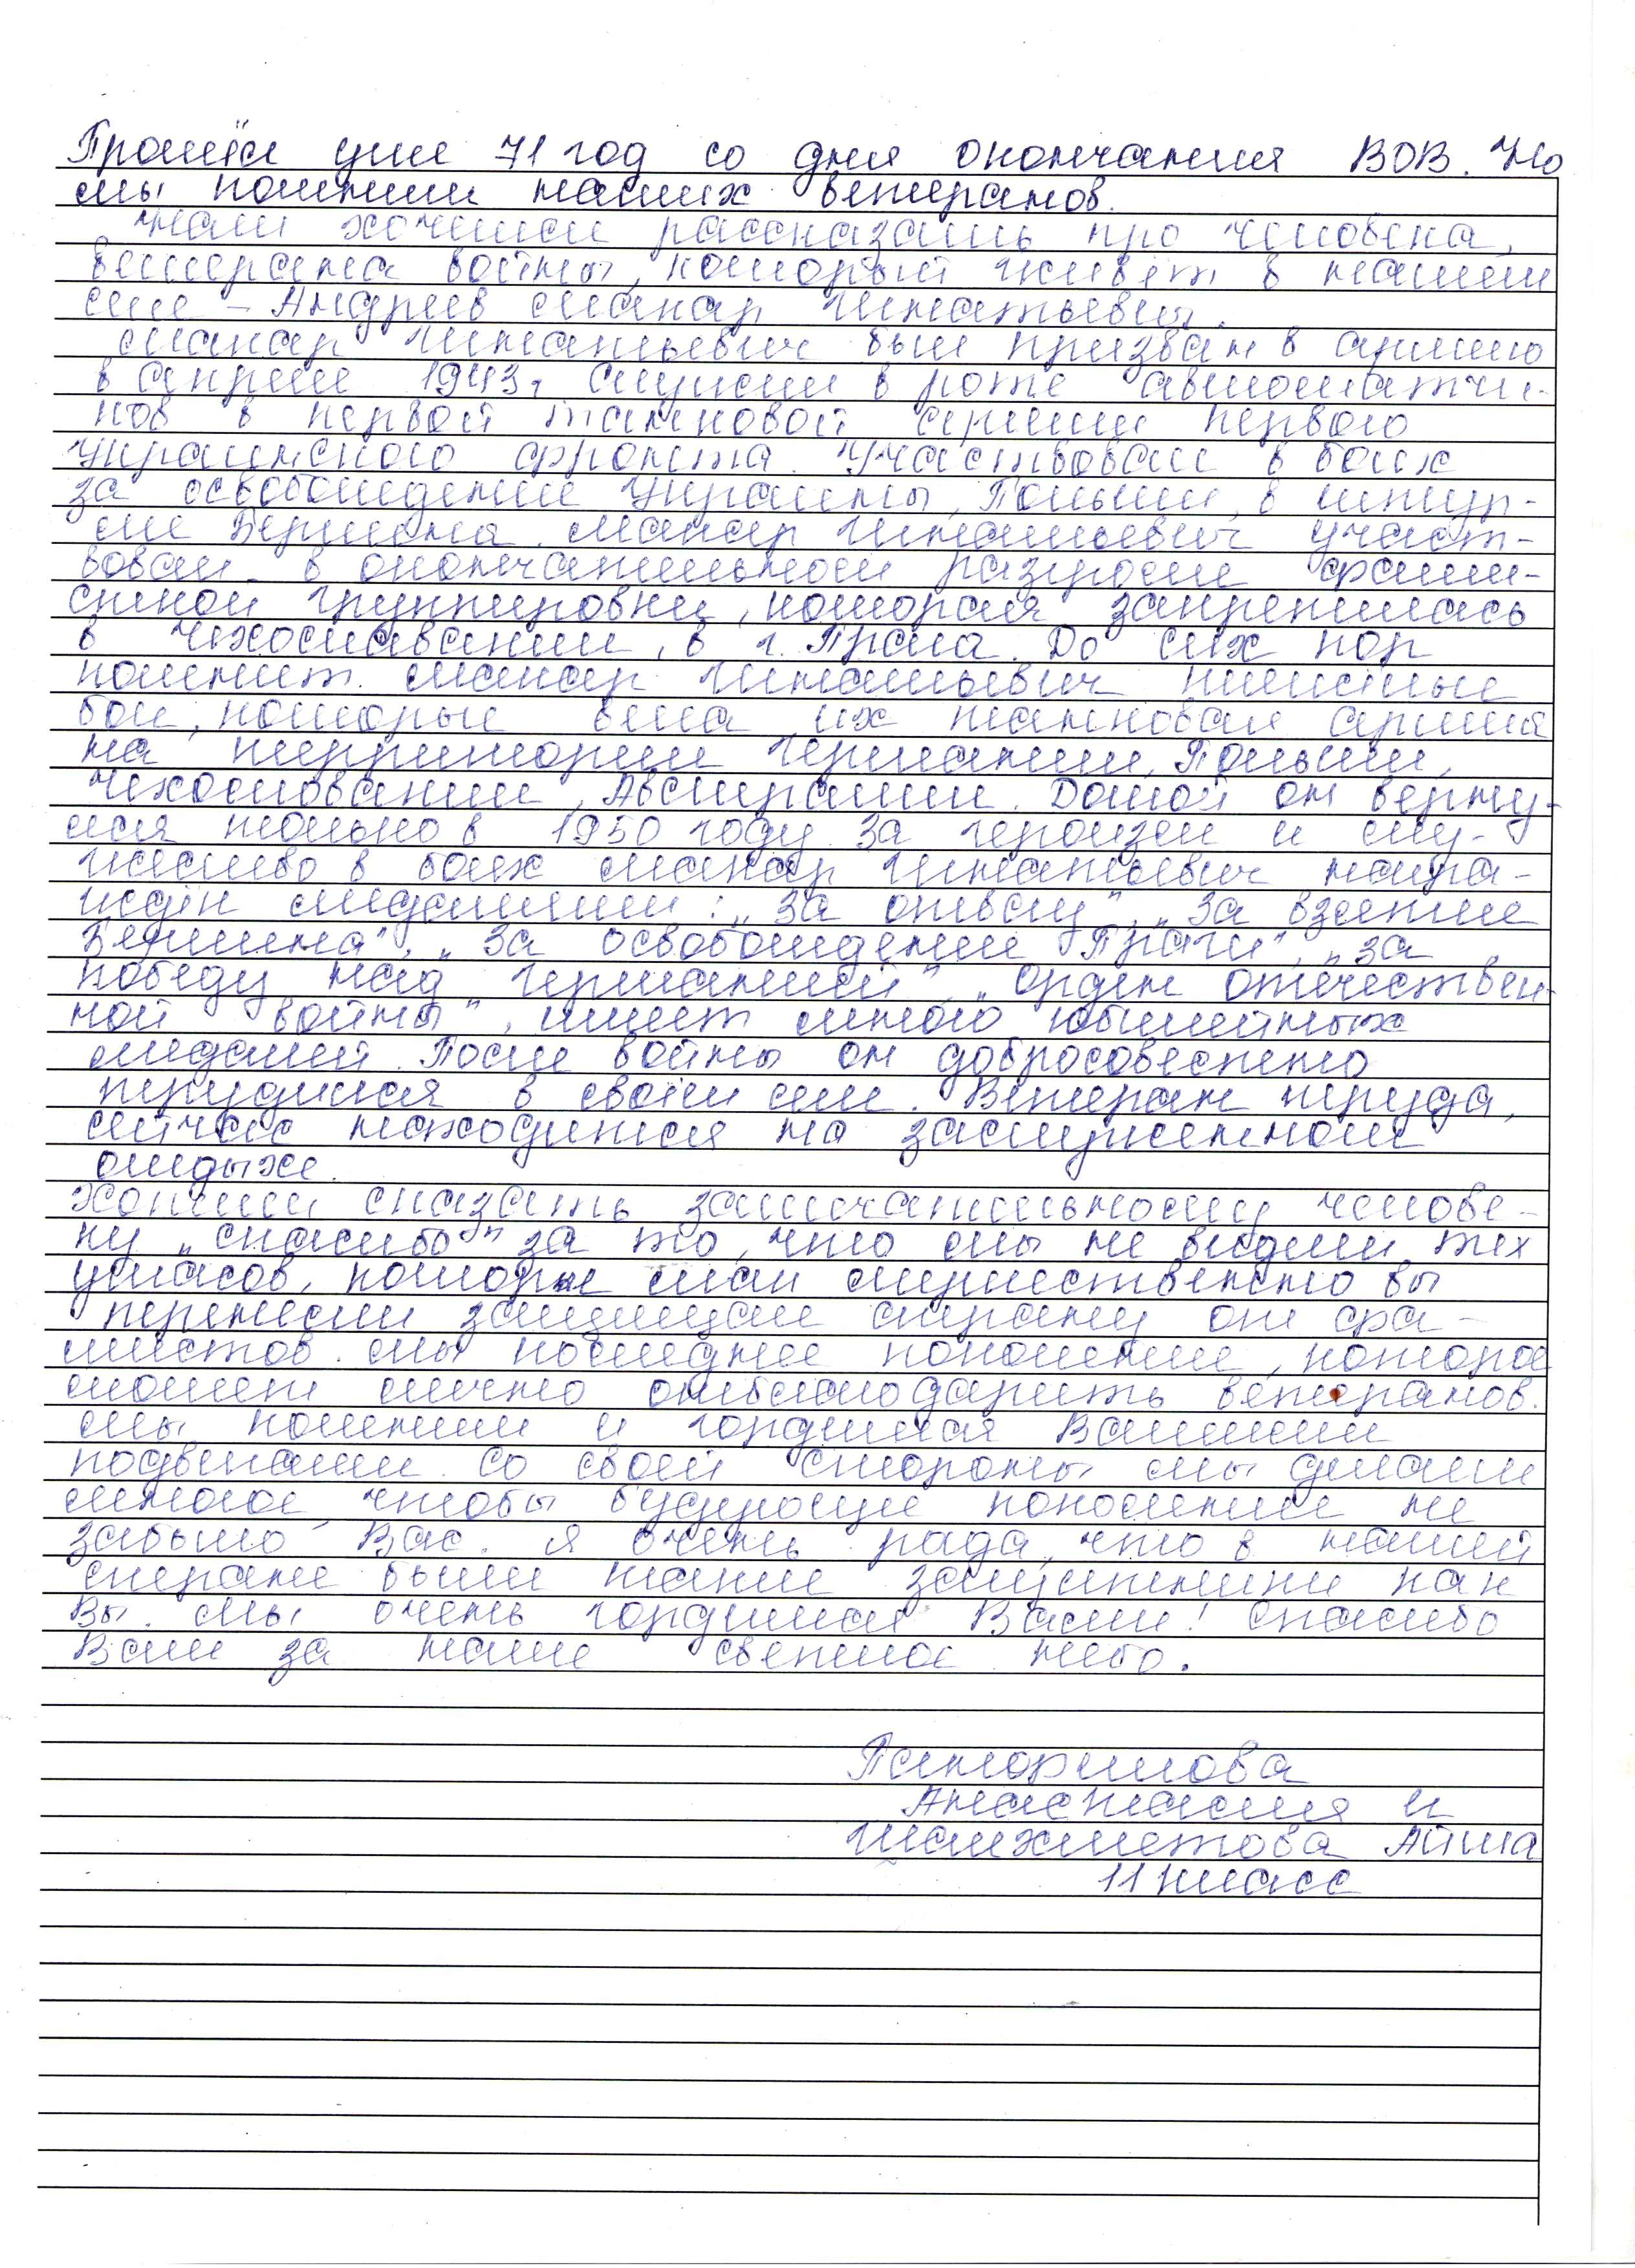 Прошёл уже 71 год со дня окончания ВОВ. Но
мы помним наших ветеранов.
Нам хочется рассказать про человека,
ветерана войны, который живёт в нашем
селе – Андреев Макар Игнатьевич.
Макар Игнатьевич был призван в армию
в апреле 1943г, служил в роте автоматчи-
ков в первой танковой армии первого
Украинского фронта. Участвовал в боях
за освобождение Украины, Польши, в штур-
ме Берлина. Макар Игнатьевич участ-
вовал в окончательном разгроме фаши-
сткой группировки, которая закрепилась
в Чехославакии, в г. Прага. До сих пор
помнит Макар Игнатьевич тяжёлые
бои, которые вела их танковая армия
на территории Германии, Польши,
Чехословакии, Австралии. Домой он верну-
лся только в 1950 году. За героизм и му-
жество в боях Макар Игнатьевич награ-
ждён медалями: „За отвагу", „За взятие
Берлина", „За освобождение Праги", „За
победу над Германией", „Орден отечествен-
ной войны", имеет много юбилейных
медалей. После войны он добросовестно
трудился в своём селе. Ветеран труда,
сейчас находится на заслуженном
отдыхе.
Хотим сказать замечательному челове-
ку „спасибо" за то, что мы не видели тех
ужасов, которые так мужественно вы
перенесли защищая страну от фа-
шистов. Мы последнее поколение, которое
может лично отблагодарить ветеранов.
Мы помним и гордимся Вашими
подвигами. Со своей стороны мы делаем
многое, чтобы будущее поколение не
забыло Вас. Я очень рада, что в нашей
стране были такие защитники как
Вы. Мы очень гордимся Вами! Спасибо
Вам за наше светлое небо.
Анастасия и
Шаихметова Айша
11 класс